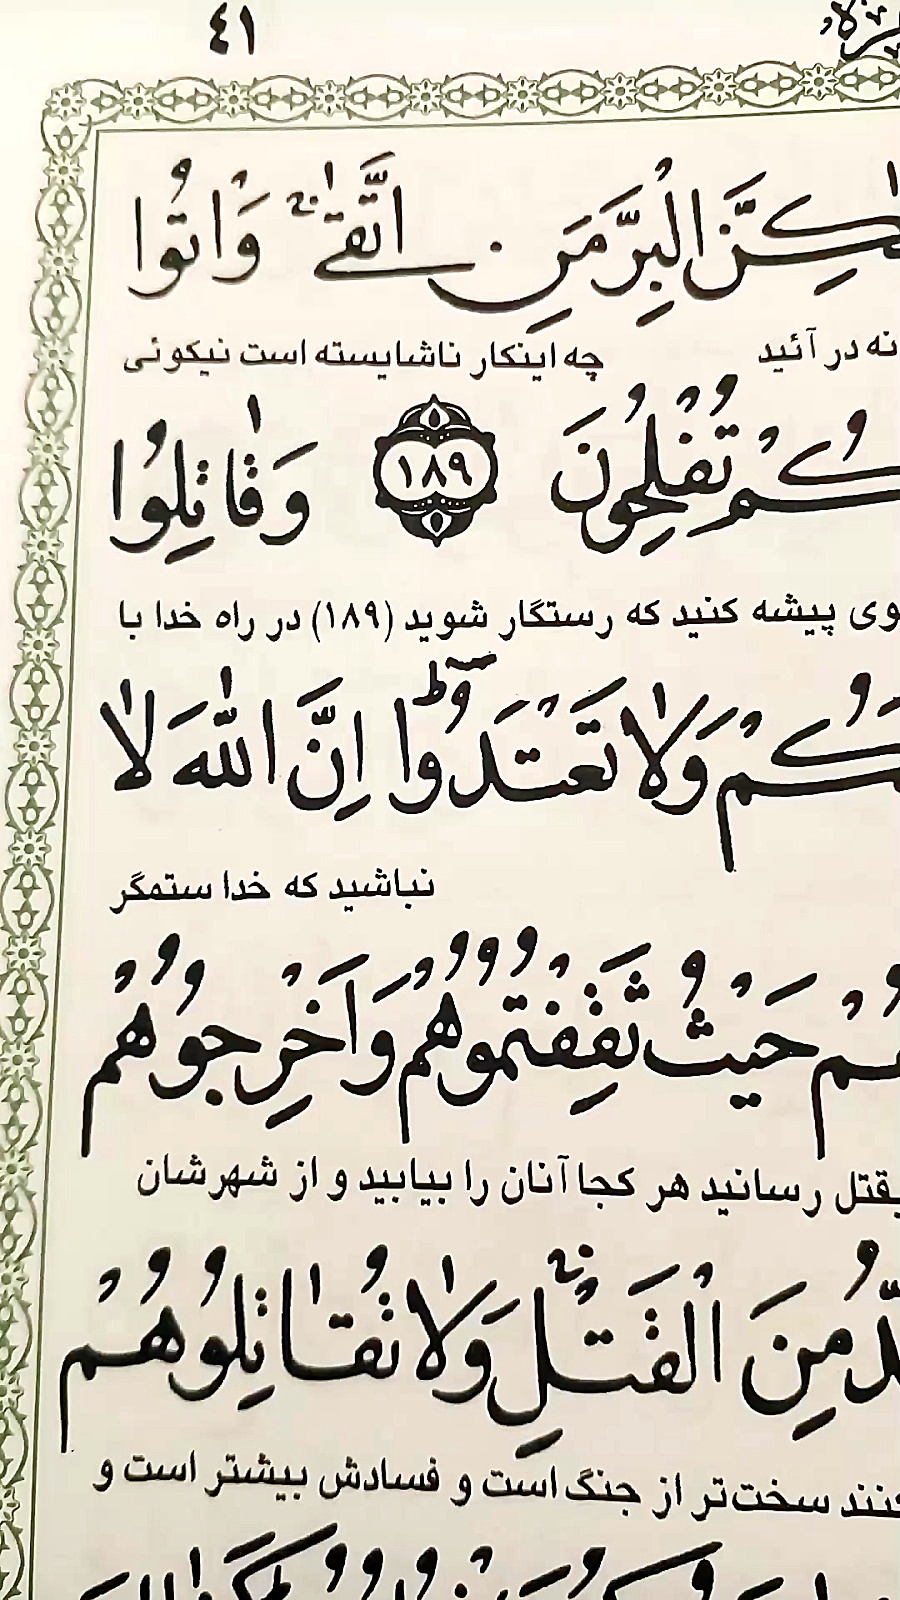 ٤١
الْبِرَّ مَنِ اتَّقٰى ۚ وَاْتُوا
نه در آئید چه اینکار ناشایسته است نیکوئی
تُفْلِحُونَ ١٨٩ وَقٰاتِلُوا
پیشه کنید که رستگار شوید (١٨٩) در راه خدا با
وَلاٰ تَعْتَدُوۤا ۚ اِنَّ اللّٰهَ لاٰ
نباشید که خدا ستمگر
حَیْثُ ثَقِفْتُمُوهُمْ وَاَخْرِجُوهُمْ
بقتل رسانید هر کجا آنان را بیابید و از شهرشان
مِنَ الْقَتْلِ ۚ وَلاٰ تُقٰاتِلُوهُمْ
کنند سخت‌تر از جنگ است و فسادش بیشتر است و